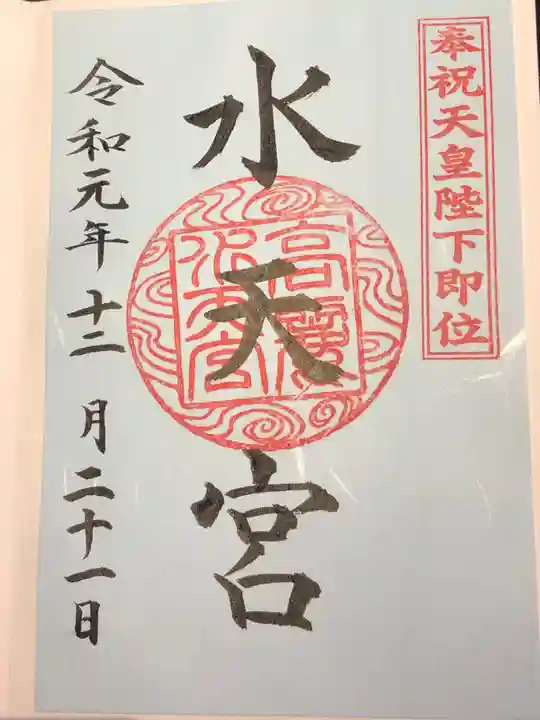 奉祝天皇陛下即位
水天宮
高廣
水天宮
令和元年十二月二十一日